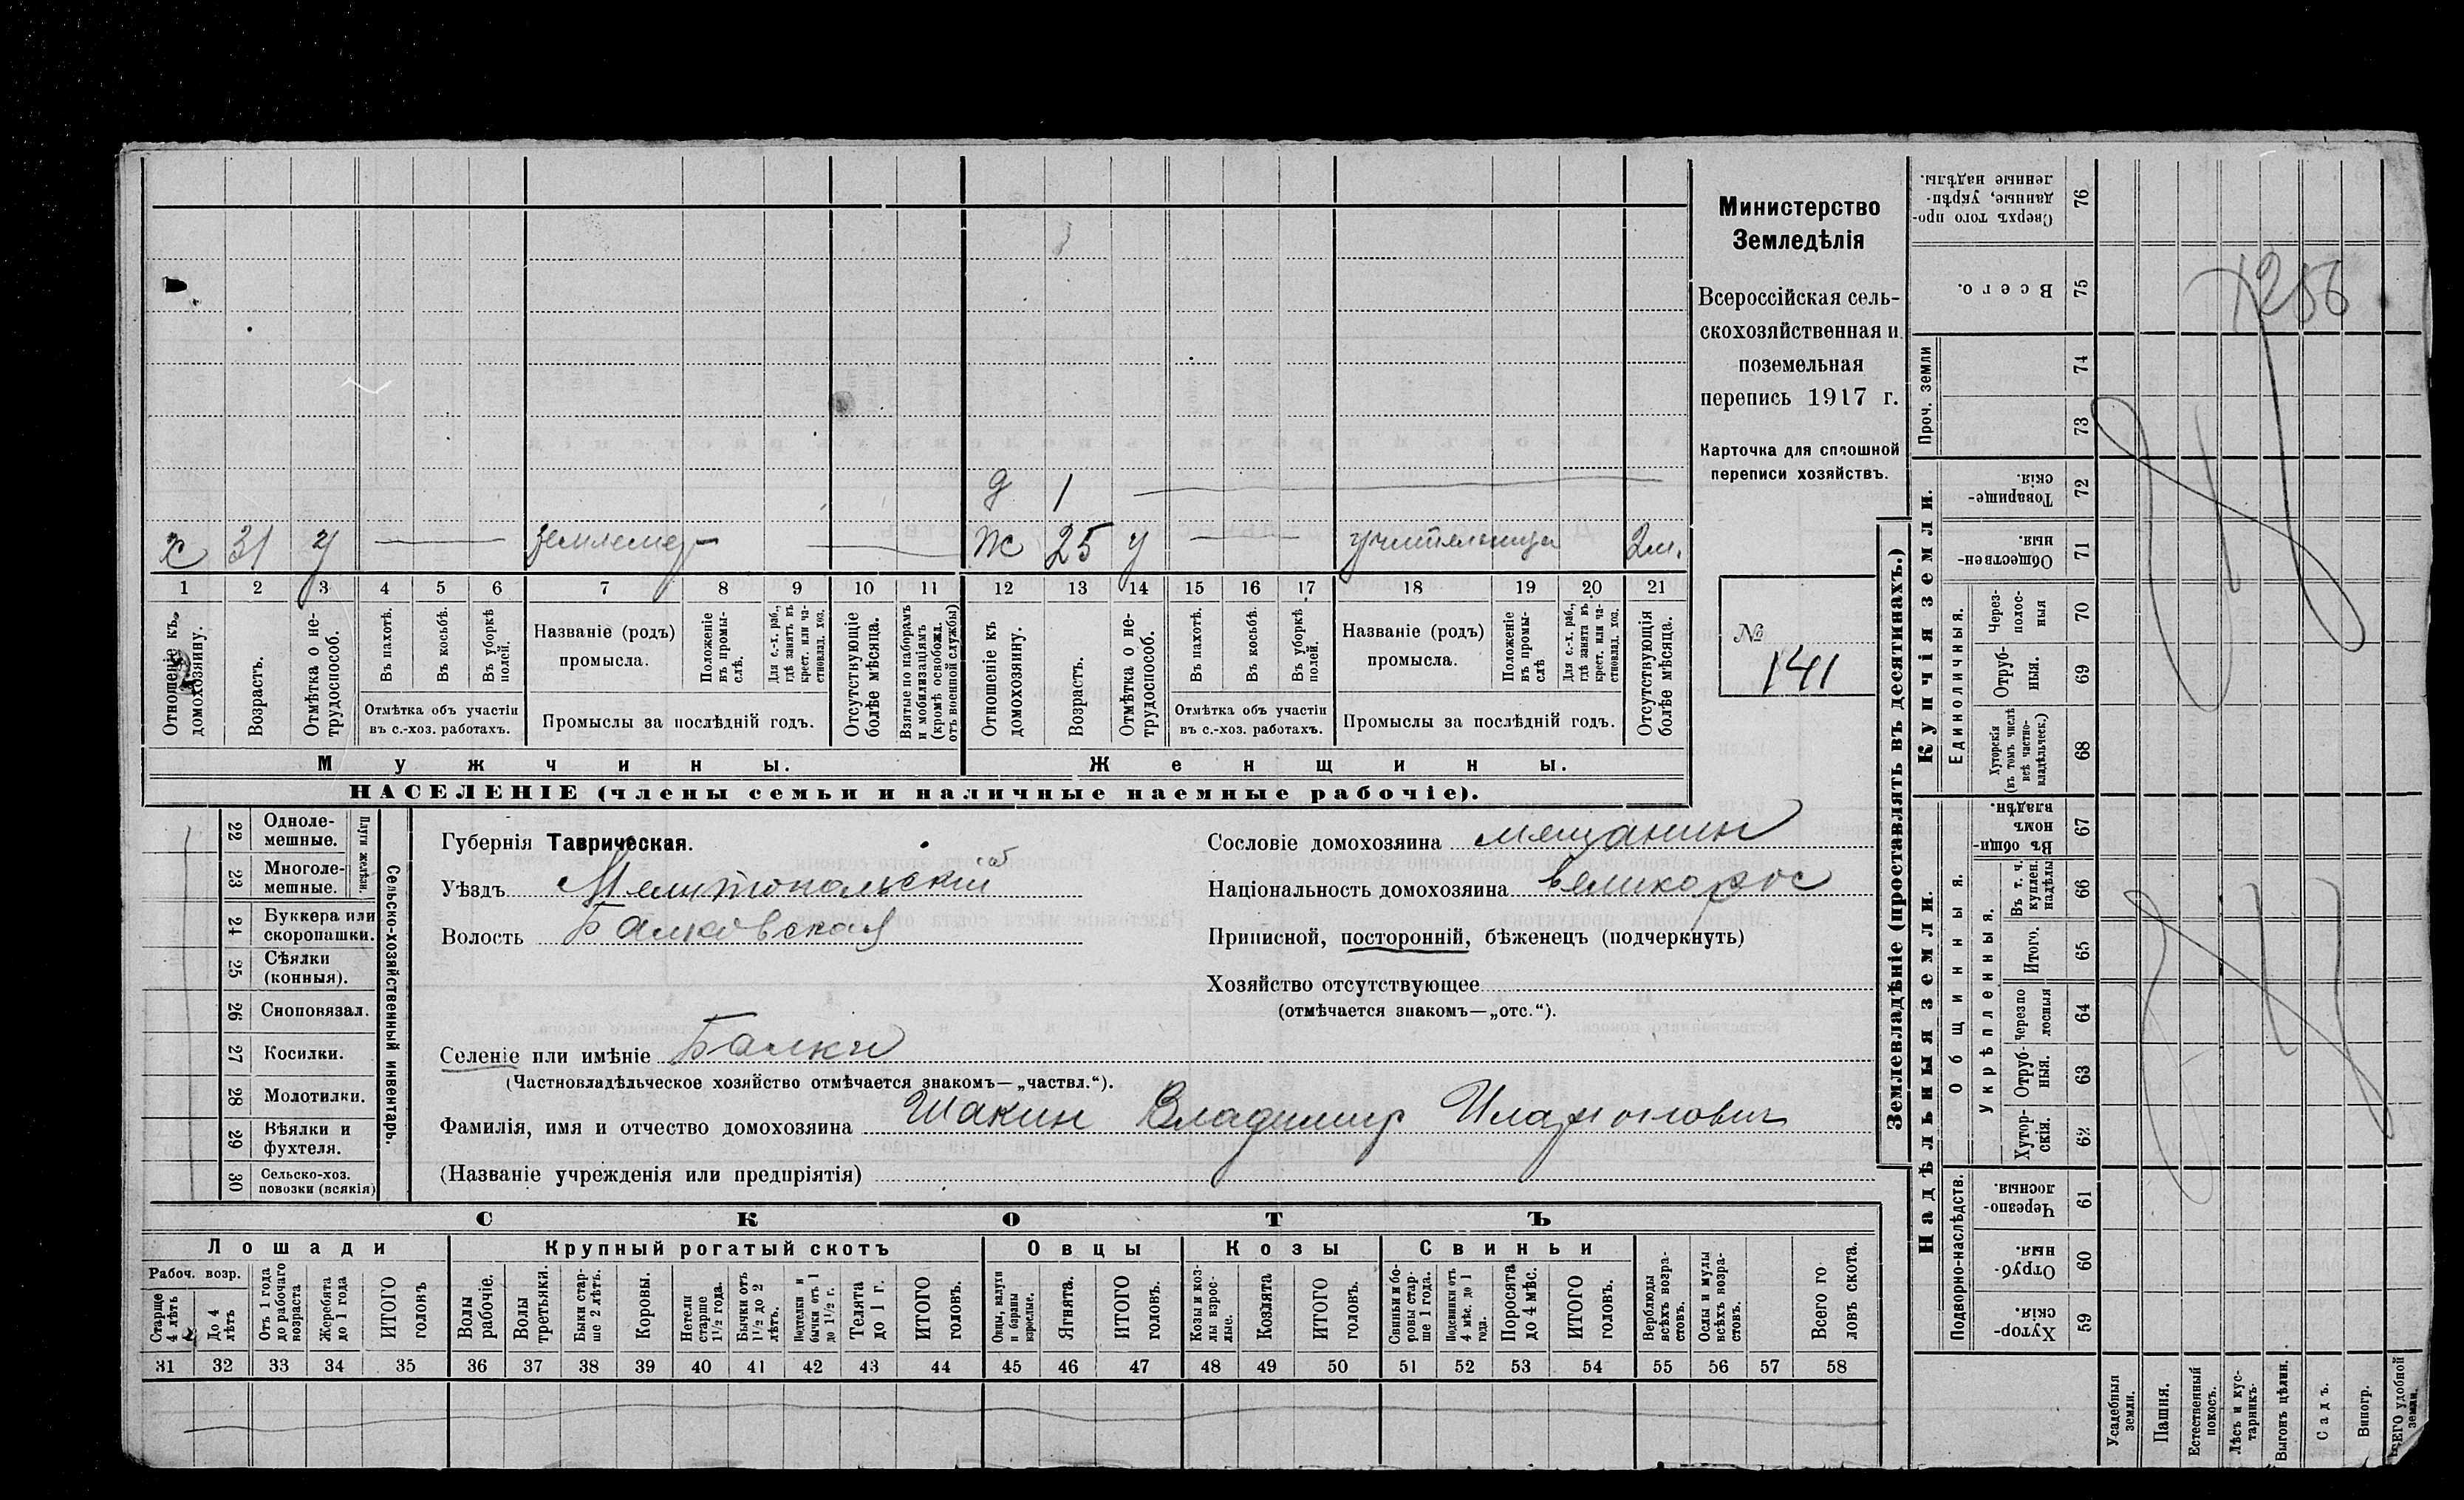 х 31 у — — землемер — — ж 25 у — — учительница 2 м.
д 1
1 2 3 4 5 6 7 8 9 10 11 12 13 14 15 16 17 18 19 20 21
Отношеніе къ домохозяину.
Возрастъ.
Отмѣтка о нетрудоспособ.
Въ пахотѣ.
Въ косьбѣ.
Въ уборкѣ полей.
Отмѣтка объ участіи
въ с.-хоз. работахъ.
Названіе (родъ)
промысла.
Положеніе въ промыслѣ.
Для с.-х. раб., гдѣ занятъ въ крест. или частновлад. хоз.
Промыслы за послѣдній годъ.
Отсутствующіе болѣе мѣсяца.
Взятые по наборамъ и мобилизаціямъ (кромѣ освобожд. отъ военной службы)
Отношеніе къ домохозяину.
Возрастъ.
Отмѣтка о нетрудоспособ.
Въ пахотѣ.
Въ косьбѣ.
Въ уборкѣ полей.
Отмѣтка объ участіи
въ с.-хоз. работахъ.
Названіе (родъ)
промысла.
Положеніе въ промыслѣ
Для с.-х. раб., гдѣ занята въ крест. или частновлад. хоз.
Промыслы за послѣдній годъ.
Отсутствующія болѣе мѣсяца.
Мужчины.
Женщины.
НАСЕЛЕНІЕ (члены семьи и наличные наемные рабочіе).
Министерство
Земледѣлія
Всероссійская сель-
скохозяйственная и
поземельная
перепись 1917 г.
Карточка для сплошной
переписи хозяйствъ.
№
141
Сельско-хозяйственный инвентарь.
Плуги желѣзн.
22 Одноле-
мешные.
23 Многоле-
мешные.
24 Буккера или
скоропашки.
25 Сѣялки
(конныя).
26 Сноповязал.
27 Косилки.
28 Молотилки.
29 Вѣялки и
фухтеля.
30 Сельско-хоз.
повозки (всякія)
Губернія Таврическая.
Уѣздъ Мелитопольскій
Волость Балковская
Сословіе домохозяина мещанин
Національность домохозяина великорос
Приписной, посторонній, бѣженецъ (подчеркнуть)
Хозяйство отсутствующее
(отмѣчается знакомъ—„отс.“).
Селеніе или имѣніе Балки
(Частновладѣльческое хозяйство отмѣчается знакомъ—„частвл.“).
Фамилія, имя и отчество домохозяина Шакин Владимир Иларионович
(Названіе учрежденія или предпріятія)
СКОТЪ
Лошади
Крупный рогатый скотъ
Овцы
Козы
Свиньи
Рабоч. возр.
Старше 4 лѣтъ
До 4 лѣтъ
Отъ 1 года до рабочаго возраста
Жеребята до 1 года
ИТОГО головъ
Волы рабочіе.
Волы третьяки.
Быки старше 2 лѣтъ.
Коровы.
Нетели старше 1½ года.
Бычки отъ 1½ до 2 лѣтъ.
Подтелки и бычки отъ 1 до 1½ г.
Телята до 1 г.
ИТОГО головъ.
Овцы, валухи и бараны взрослые.
Ягнята.
ИТОГО головъ.
Козы и козлы взрослые.
Козлята
ИТОГО головъ.
Свиньи и боровы старше 1 года.
Подсвинки отъ 4 мѣс. до 1 года.
Поросята до 4 мѣс.
ИТОГО головъ.
Верблюды всѣхъ возрастовъ.
Ослы и мулы всѣхъ возрастовъ.
Всего головъ скота.
31 32 33 34 35 36 37 38 39 40 41 42 43 44 45 46 47 48 49 50 51 52 53 54 55 56 57 58
Землевладѣніе (проставлять въ десятинахъ.)
Купчія земли.
Надѣльныя земли.
Сверхъ того проданные, укрѣпленные надѣлы. 76
Всего. 75
1256
Проч. земли
74
73
Товарищескія. 72
Общественныя. 71
Единоличныя.
Черезполосныя 70
Отрубныя. 69
Хуторскія (въ томъ числѣ всѣ частновладѣльческ.) 68
Общинныя.
Въ общинномъ владѣн. 67
Укрѣпленныя.
Въ т. ч. куплен. надѣлы 66
Итого. 65
Черезполосныя 64
Отрубныя. 63
Хуторскія. 62
Подворно-наслѣдств.
Черезполосныя. 61
Отрубныя. 60
Хуторскія. 59
Усадебныя земли.
Пашня.
Естественный покосъ.
Лѣсъ и кустарникъ.
Выгонъ цѣлин.
Садъ.
Виногр.
ВСЕГО удобной земли.